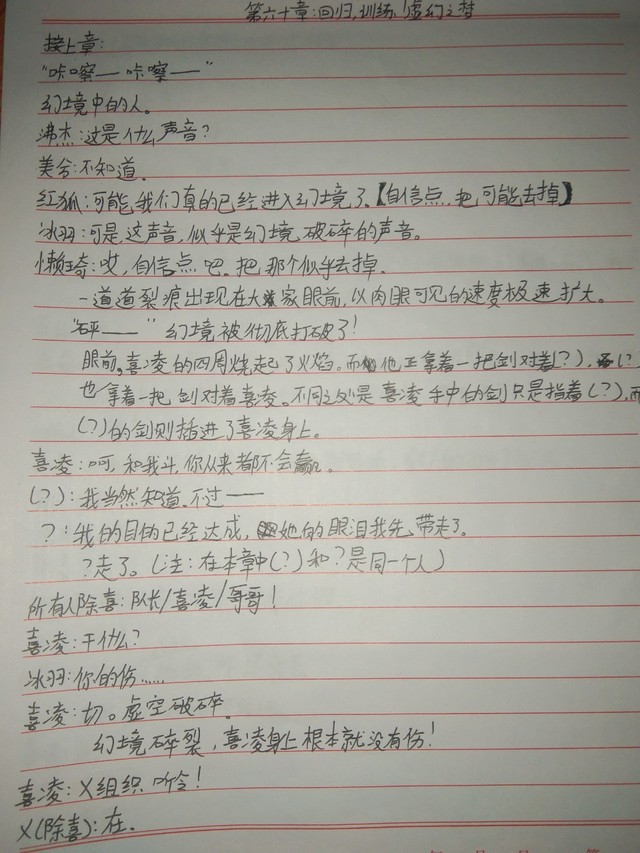 第六十章:回归,训练,虚幻之梦
接上章:
“咔嚓——咔嚓——”
幻境中的人。
沸杰:这是什么声音?
美兮:不知道。
红狐:可能,我们真的已经进入幻境了。【自信点,把可能去掉】
冰羽:可是,这声音,似乎是幻境破碎的声音。
懒琦:哎,自信点吧。把那个似乎去掉.
一道道裂痕出现在大家眼前,以肉眼可见的速度极速扩大。
“砰——” 幻境被彻底打破了!
眼前,喜凌的四周烧起了火焰。而他正拿着一把剑对着(?),(?
也拿着一把剑对着喜凌。不同之处是喜凌手中的剑只是指着(?),而
(?)的剑则插进了喜凌身上。
喜凌:呵,和我斗,你从来都不会赢。
(?):我当然知道,不过——
?:我的目的已经达成,她的眼泪我先带走了。
?走了。(注:在本章中(?)和?是同一个人)
所有人除喜:队长/喜凌/哥哥!
喜凌:干什么?
冰羽:你的伤……
喜凌:切。虚空破碎。
幻境碎裂,喜凌身上根本就没有伤!
喜凌:X组织听令!
X(除喜):在.